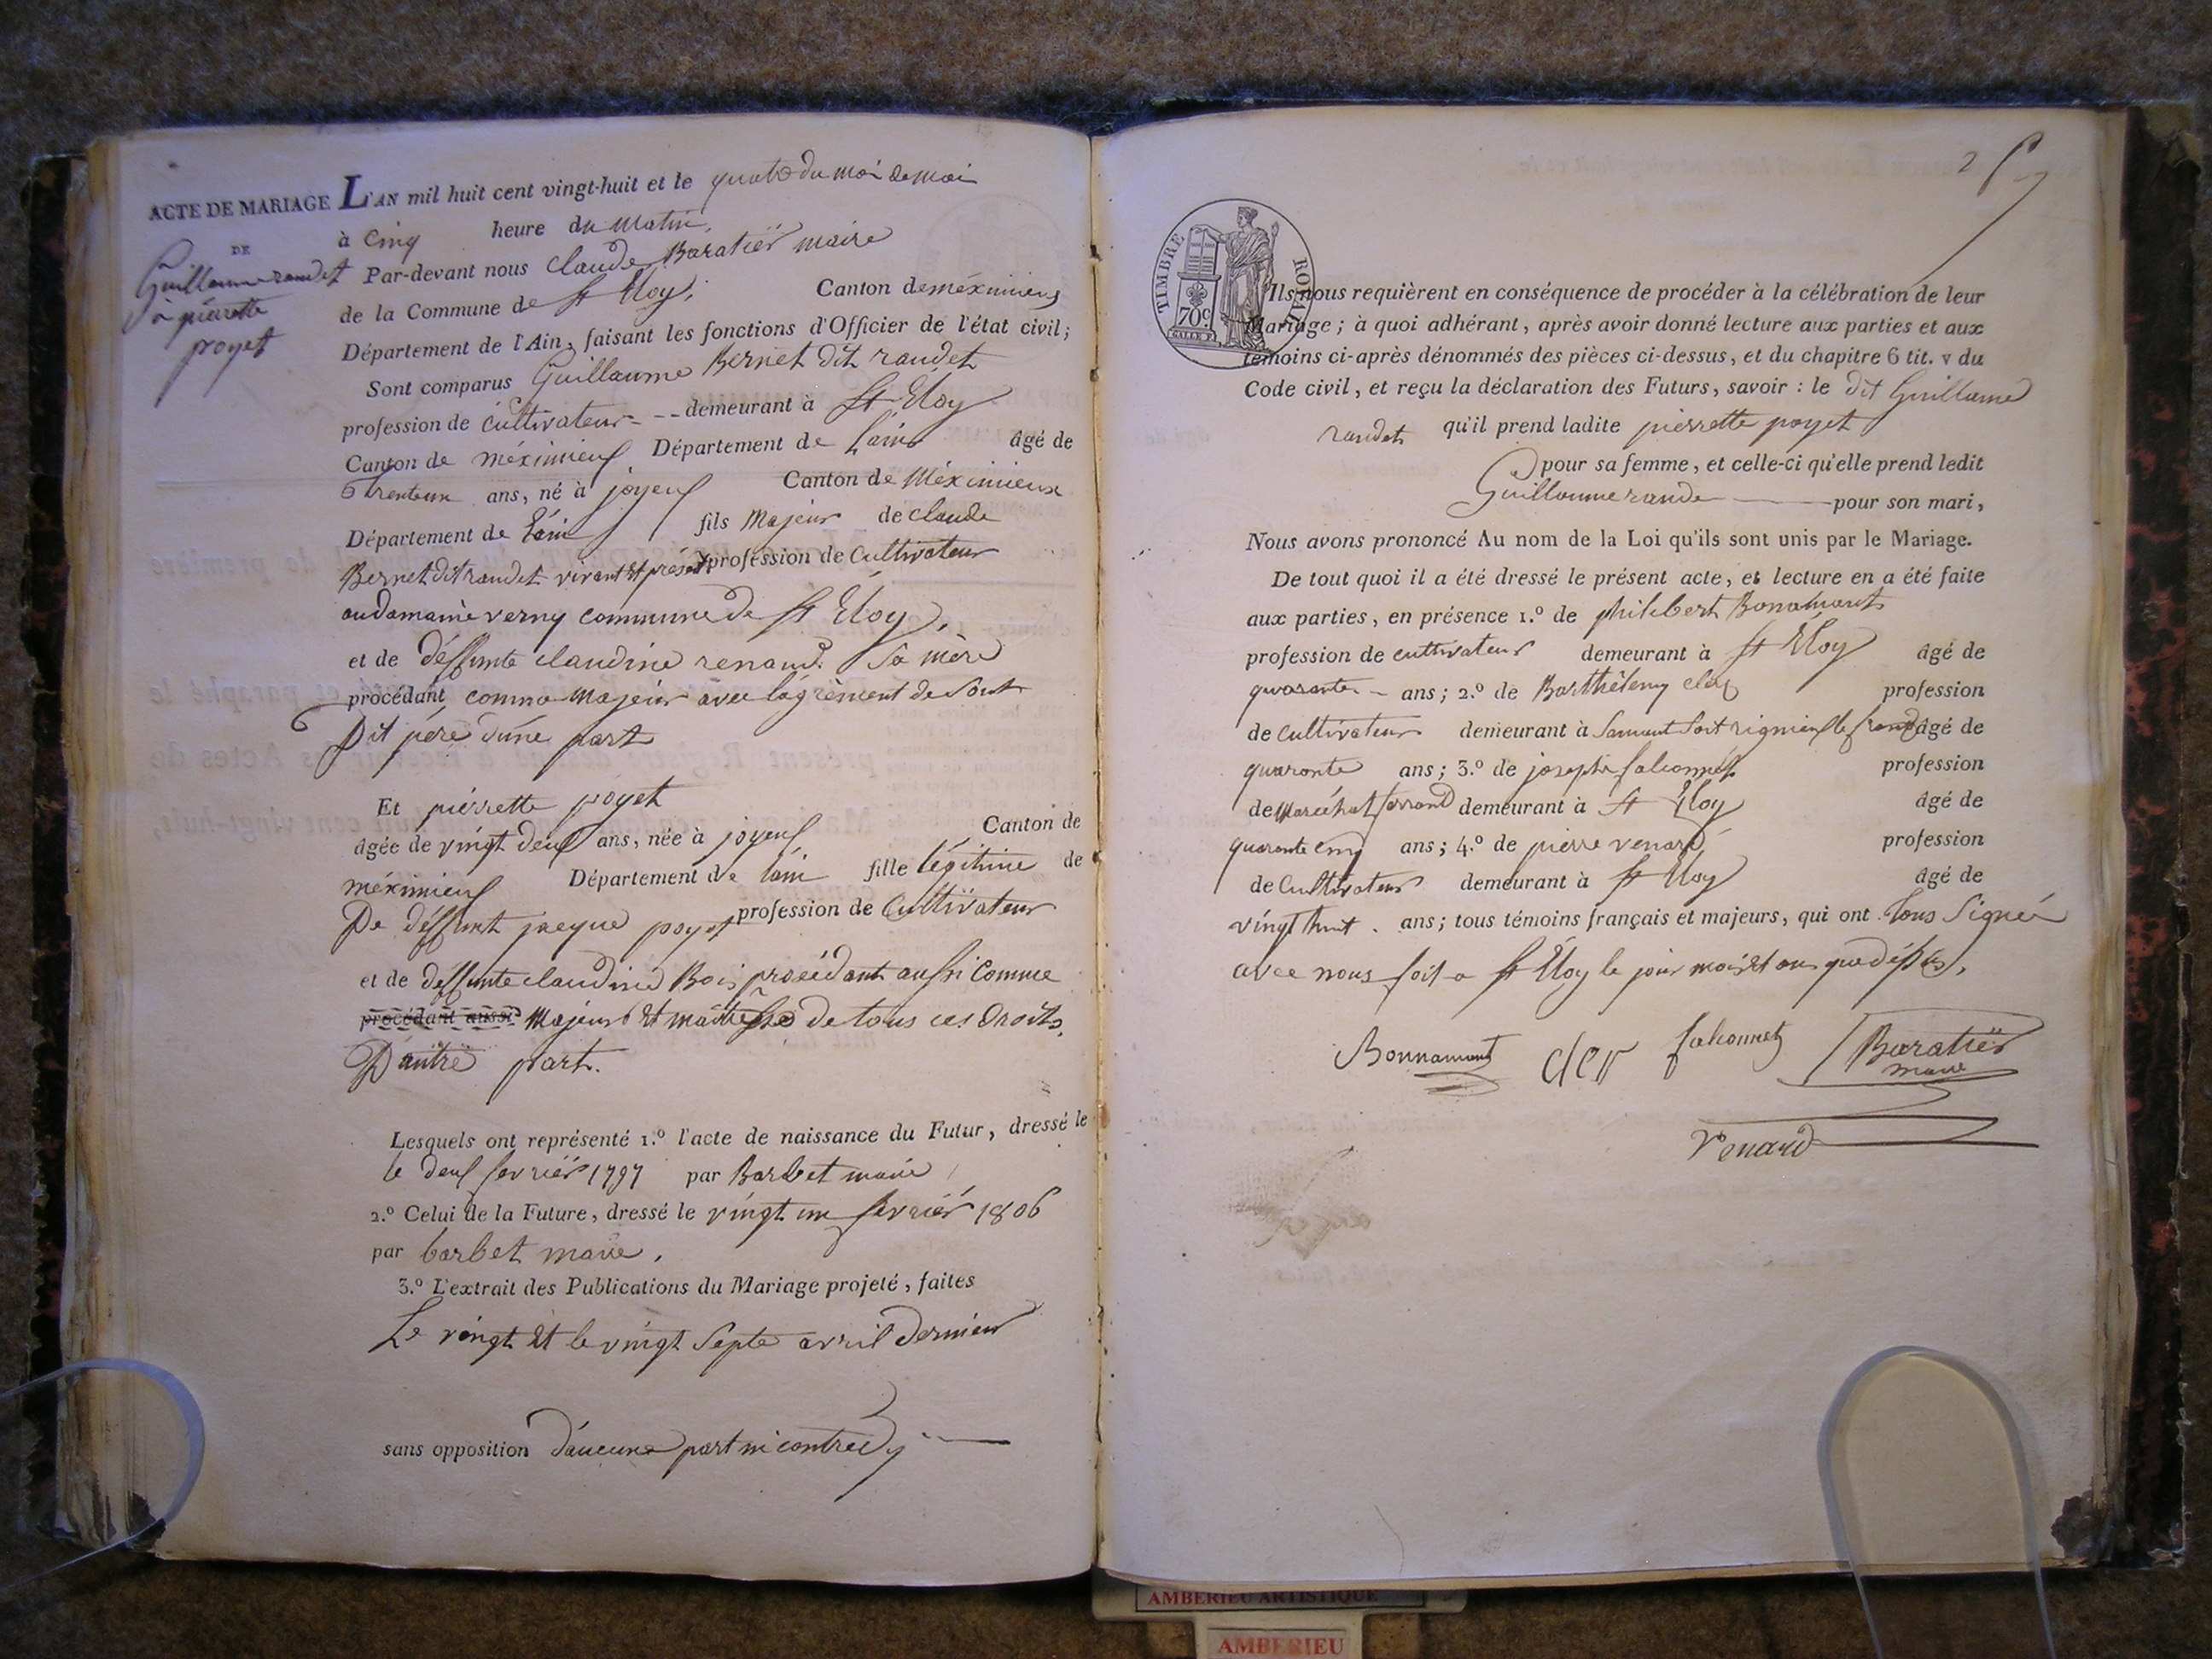 ACTE DE MARIAGE
DE
Guillaume randet
à piérrette
poyet
L'AN mil huit cent vingt-huit et le quatre du moi de mai
à Cinq heure du matin,
Par-devant nous Claude Baratier maire
de la Commune de St Eloy, Canton de méximieux
Département de l'Ain, faisant les fonctions d'Officier de l'état civil;
Sont comparus Guillaume Bernet dit randet
profession de cultivateur demeurant à St Eloy
Canton de méximieux Département de Lain âgé de
trenteun ans, né à joyeux Canton de Méximieux
Département de Lain fils Majeur de claude
Bernet dit randet vivant et présent profession de Cultivateur
au damaine verny commune de St Eloy,
et de déffunte claudine renaud. Sa mère
procédant comme Majeur avec lagrément de Sont
Dit pére d'une part
Et piérrette poyet
âgée de vingt deux ans, née à joyeux Canton de
méximieux Département de Lain fille légitime de
De déffunt jacque poyet profession de Cultivateur
et de déffunte claudine Bois procédant aussi Comme
procédant aussi Majeur Et maitresse de tous ces Droits,
D'autre part.
Lesquels ont représenté 1.º l'acte de naissance du Futur, dressé le
le deux fevrier 1797 par Barbet maire
2.º Celui de la Future, dressé le vingt un fevrier 1806
par barbet maire,
3.º L'extrait des Publications du Mariage projeté, faites
Le vingt Et le vingt Septe avril dernier
sans opposition d'aucune part ni contredy
TIMBRE ROYAL
70c.
Ils nous requièrent en conséquence de procéder à la célébration de leur
Mariage; à quoi adhérant, après avoir donné lecture aux parties et aux
témoins ci-après dénommés des pièces ci-dessus, et du chapitre 6 tit. v du
Code civil, et reçu la déclaration des Futurs, savoir : le dit Guillaume
randet qu'il prend ladite pierrette poyet
pour sa femme, et celle-ci qu'elle prend ledit
Guillaume rande pour son mari,
Nous avons prononcé Au nom de la Loi qu'ils sont unis par le Mariage.
De tout quoi il a été dressé le présent acte, et lecture en a été faite
aux parties, en présence 1.º de philibert Bonamant
profession de cultivateur demeurant à St Eloy âgé de
quarante ans; 2.º de Barthélemy profession
de cultivateur demeurant à rignieux le franc âgé de
quaronte ans; 3.º de joseph falconnet profession
de Maréchal ferrand demeurant à St Eloy âgé de
quaronte cinq ans; 4.º de pierre venard profession
de Cultivateur demeurant à St Eloy âgé de
vingt huit. ans; tous témoins français et majeurs, qui ont tous Signée
avec nous foit a St Eloy le jour mois et an que dessus,
Bonnamant falconnet Baratier
maire
Venard
AMBERIEU ARTISTIQUE
AMBERIEU